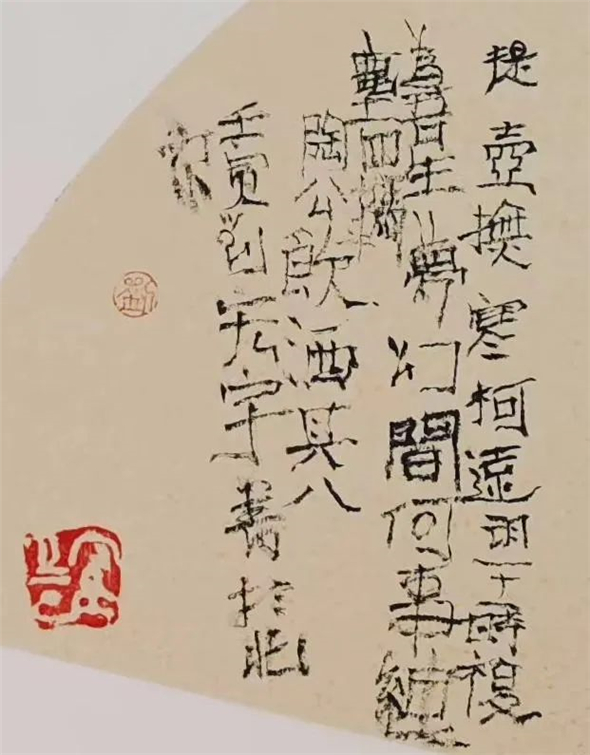 提壺撫寒柯遠望時復
為吾生夢幻間何事紲
塵羈
陶公飲酒其八
壬寅劉宇書於北
京
劉